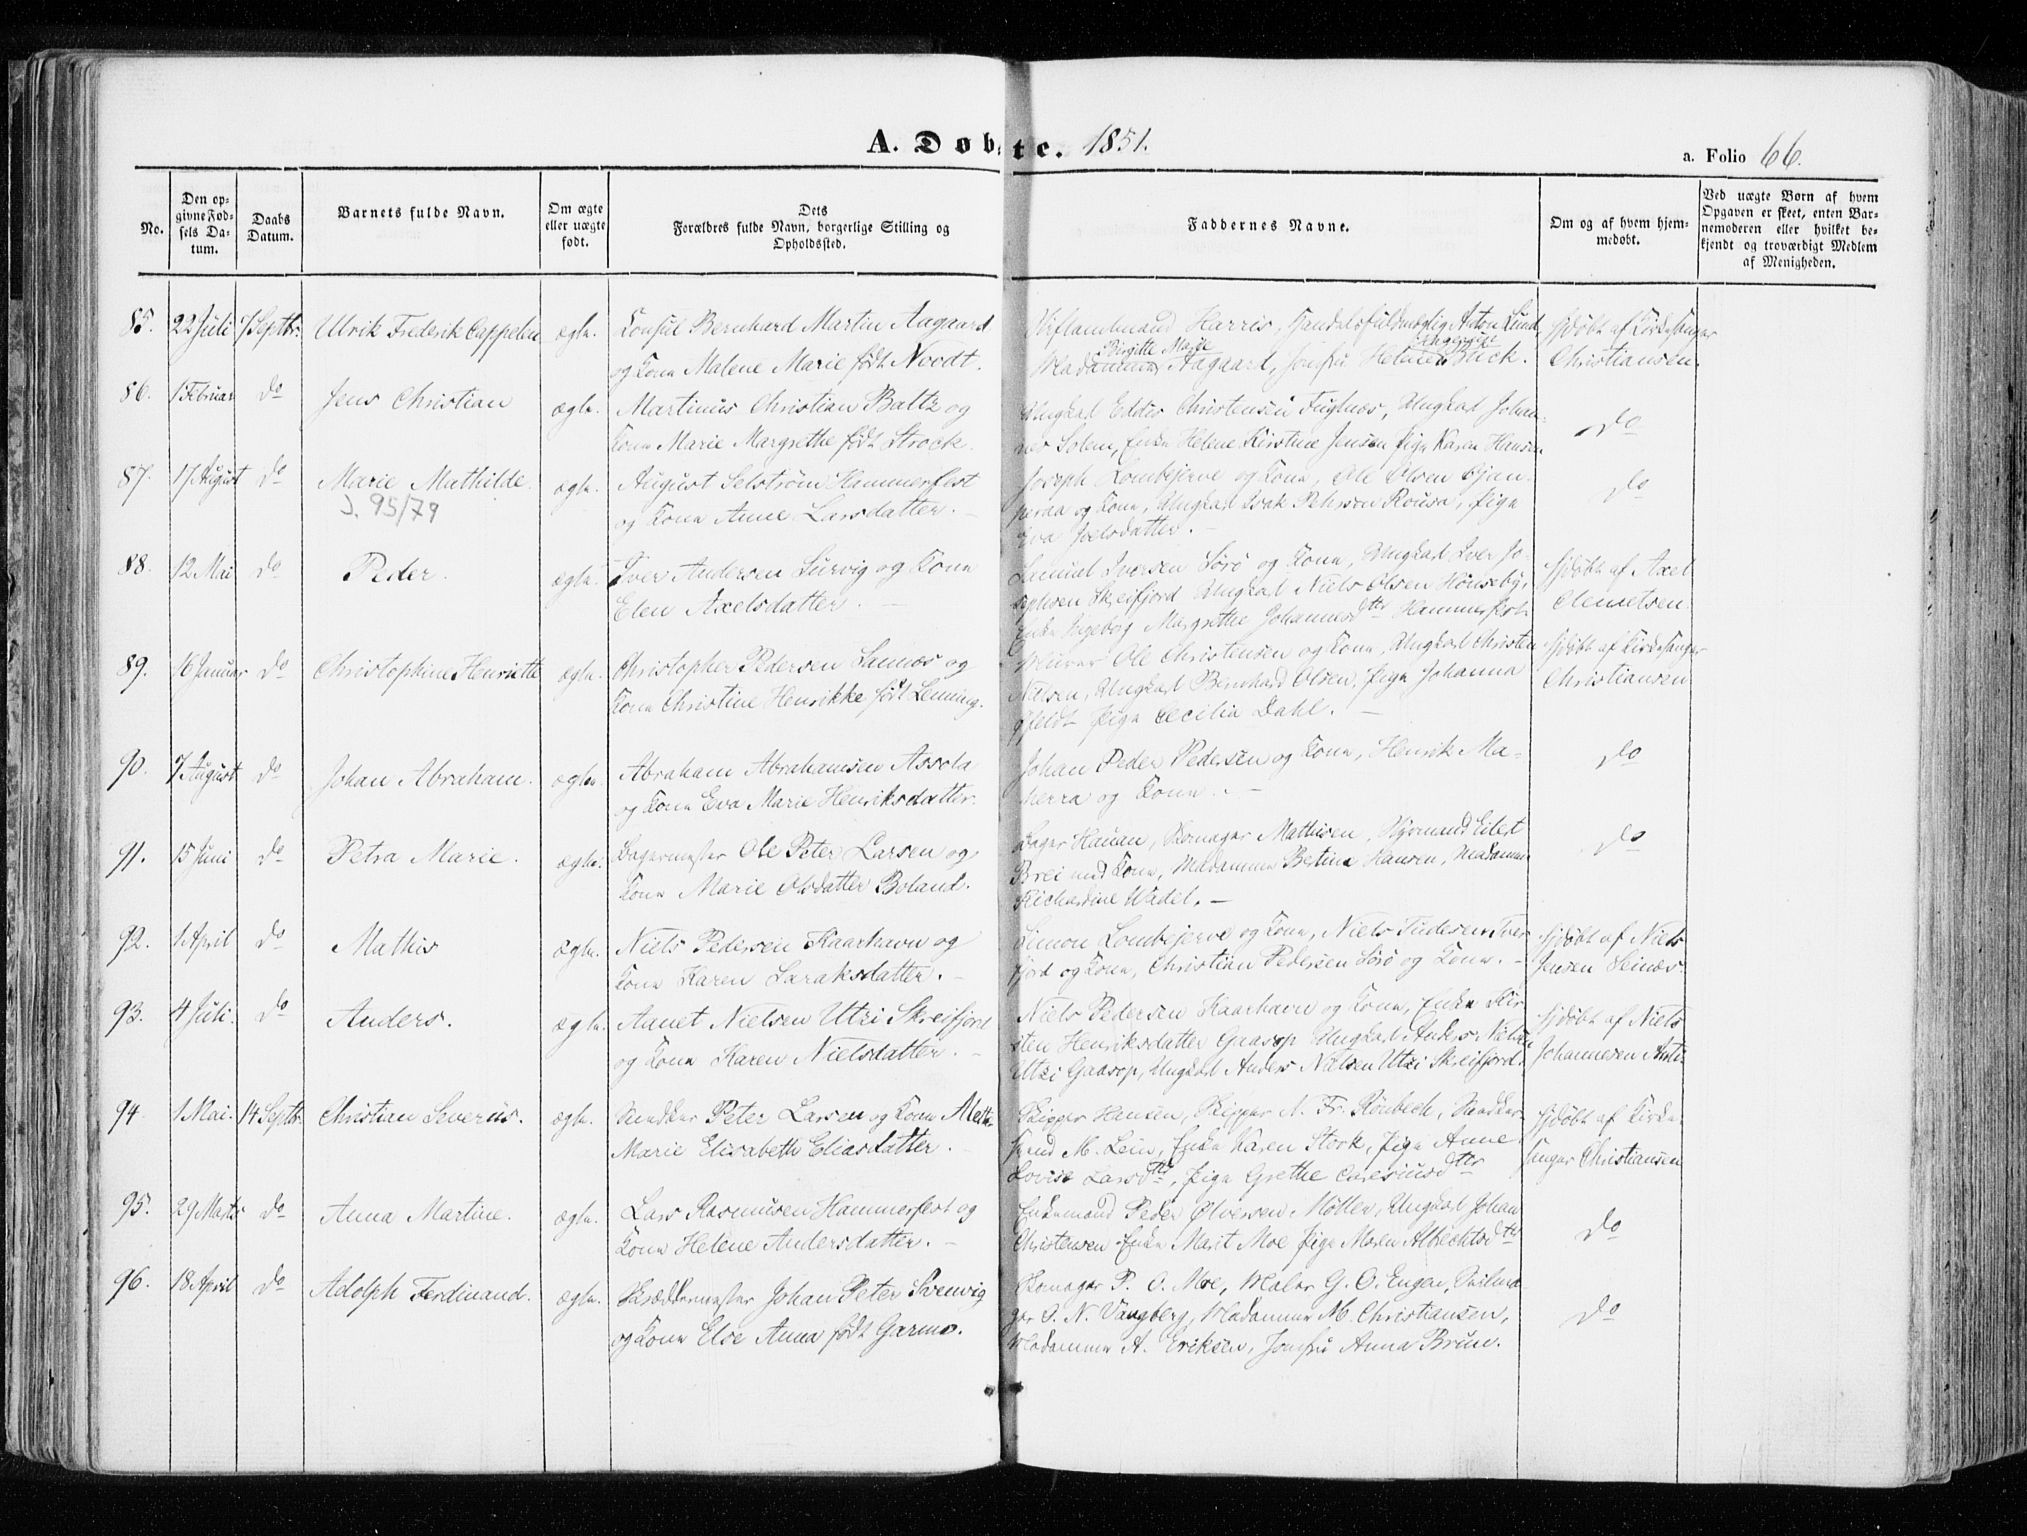 A. Døbte. 1851.
a. Folio 66.
No.
Den opgivne Fødsels Datum.
Daabs Datum.
Barnets fulde Navn.
Om ægte eller uægte født.
Dets Forældres fulde Navn, borgerlige Stilling og Opholdssted.
Faddernes Navne.
Om og af hvem hjemmedøbt.
Ved uægte Børn af hvem Opgaven er skeet, enten Barnemoderen eller hvilket bekjendt og troværdigt Medlem af Menigheden.
85. 22 Juli 7 Septbr. Ulrik Frederik Cappelen ægte. Consul Bernhard Martin Aagaard
og Kone Malene Marie født Nordt.
Harris, Handelsfuldmægtig Anton Lund
Birgitte Marie
Madamme Aagaard, Jomfru Buck.
Hjdøbt af Kirkesanger
Christiansen.
86. 1 Februar do Jens Christian ægte. Martinus Christian Baltz og
Kone Marie Margrethe født Strock.
Ungkarl Edder Christensen Fuglnæs, Ungkarl Johannes Solem, Enke Helene Kirstine Jensen Pige Karen Hansen
do
87. 17 August do Marie Mathilde. ægte. August Selström Hammerfest
J. 95/79
og Kone Anne Larsdatter.
Joseph Lombejerve og Kone, Ole Olsen
og Kone, Ungkarl Isak Petersen Rousa, Pige
Eva Joelsdatter.
do
88. 12 Mai do Peder. ægte. Iver Andersen Sürvig og Kone
Elen Axelsdatter.
Samuel Iversen Sörö og Kone, Ungkarl Iver Josephsen Skreifjord Ungkarl Niels Olsen Hönseby,
Enke Ingeborg Margrethe Johannesdtr Hammerfest
Hjdøbt af Axel
Clemetsen.
89. 16 Januar do Christophine Henriette ægte. Christopher Pedersen Sannæs og
Kone Christine Henrikke født Lenning.
Ole Christensen og Kone, Ungkarl Christen
Nielsen, Ungkarl Bernhard Olsen, Pige Johanna
Pige Cecilia Dahl.
Hjdøbt af Kirkesanger
Christiansen
90. 7 August do Johan Abraham. ægte. Abraham Abrahamsen Assola
og Kone Eva Marie Henriksdatter.
Johan Peder Pedersen og Kone, Henrik Maherra og Kone.
do
91. 15 Juni do Petra Marie. ægte. Bagermester Ole Peter Larsen og
Kone Marie Olsdatter Boland.
Bager Hauan, Skomager Mathisen, Styrmand Eilert
Brei med Kone, Madamme Betina Hansen, Madamme
Richardine Wadel.
do
92. 1 April do Mathis ægte. Niels Pedersen Kaarhavn og
Kone Karen Saraksdatter.
Simon Lombejerve og Kone, Niels Tudesen Tverfjord og Kone, Christian Pedersen Sörö og Kone.
Hjdøbt af Niels
Jensen Seinæs.
93. 4 Juli. do Anders. ægte. Aanet Nielsen Utzi Skreifjord
og Kone Karen Nielsdatter.
Niels Pedersen Kaarhavn og Kone, Enke Kirsten Henriksdatter Gaasop Ungkarl Anders Nielsen
Utzi Gaasop, Ungkarl Anders Nielsen Utzi Skreifjord.
Hjdøbt af Niels
Johannesen Anti
94 1 Mai. 14 Septbr. Christian Severüs. ægte. Snedker Peter Larsen og Kone Alette
Marie Elisabeth Eliasdatter.
Skipper Hansen, Skipper N. Fr. Rönbech, Snedkersvend M. Lein, Enke Karen Stork, Pige Anne
Lovise Larsdtr, Pige Grethe Caresiusdtr
Hjdøbt af Kirkesanger Christiansen
95. 29 Marts do Anna Martine. ægte. Lars Rasmusen Hammerfest og
Kone Helene Andersdatter.
Enkemand Peder Olversen Møller, Ungkarl Johan
Christensen Enke Marit Moe Pige Maren Albrechtsdtr
do
96. 18 April do Adolph Ferdinand. ægte. Skræddermester Johan Peter Svenvig
og Kone Else Anna født Garmo.
Skomager P. O. Moe, Maler G. O. Engen,
O. N. Vangberg, Madamme M. Christiansen,
Madamme A. Eriksen, Jomfru Anna Brun.
do